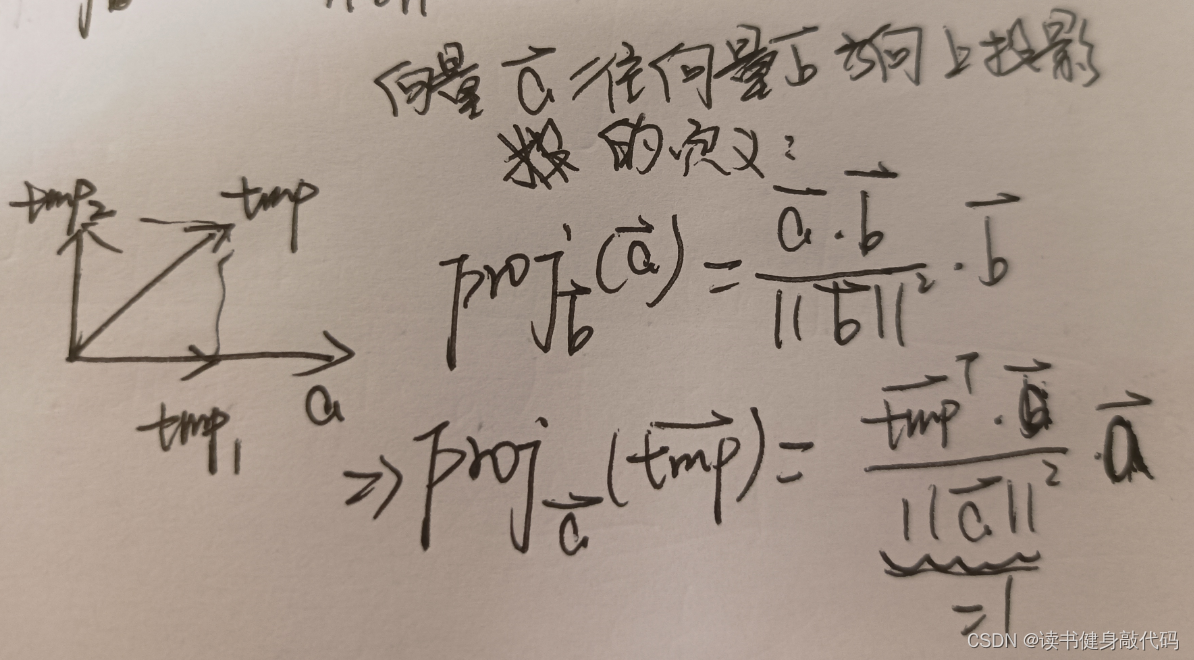 向量 \vec{a} 在向量 \vec{b} 方向上投影
的定义:
tmp₂ tmp
proj_{\vec{b}}(\vec{a}) = \frac{\vec{a} \cdot \vec{b}}{||\vec{b}||^2} \cdot \vec{b}
tmp₁ a
⇒ proj_{\vec{a}}(\vec{tmp}) = \frac{\vec{tmp}^T \cdot \vec{a}}{||\vec{a}||^2} \cdot \vec{a}
=1
CSDN @读书健身敲代码